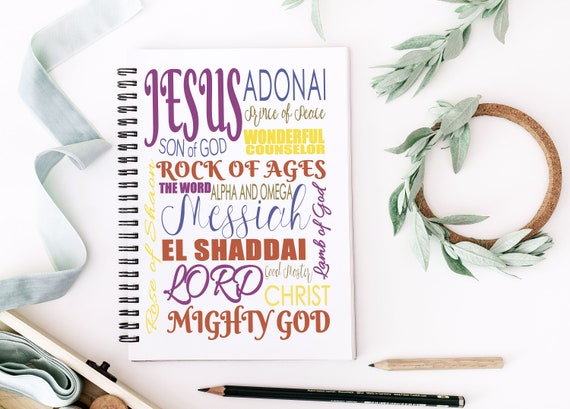 JESUS
ADONAI
Prince of Peace
SON of GOD
WONDERFUL
COUNSELOR
ROCK OF AGES
THE WORD
ALPHA AND OMEGA
Messiah
Rose of Sharon
Lamb of God
EL SHADDAI
LORD
Good Master
CHRIST
MIGHTY GOD